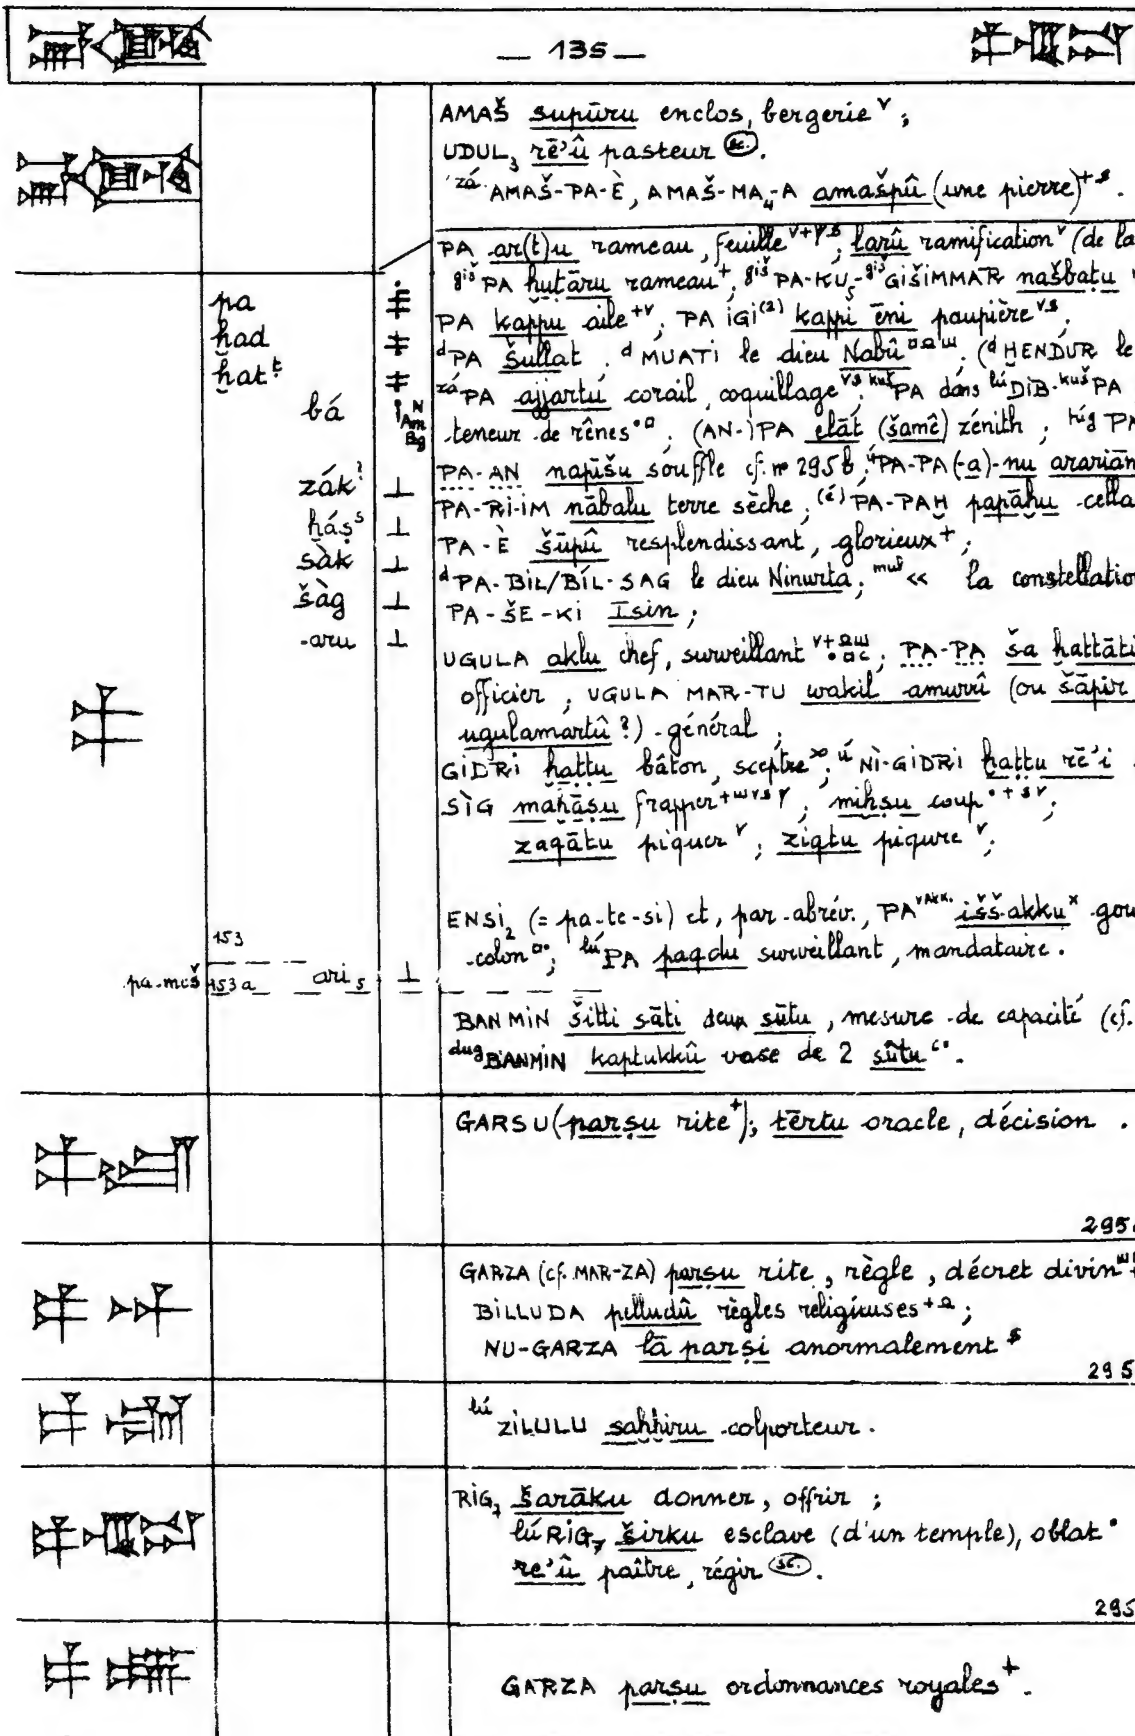 — 135 —
AMAŠ supūru enclos, bergerie ᵛ ;
UDUL₃ rē'û pasteur (sc.).
ᶻᵃ́ AMAŠ-PA-È, AMAŠ-MA₄-A amašpû (une pierre)⁺ˢ .
PA ar(t)u rameau, feuille ; larû ramification ᵛ (de la
ᵍⁱˢ̌ PA ḫuṭāru rameau⁺, ᵍⁱˢ̌ PA-KU₅-ᵍⁱˢ̌ GIŠIMMAR našbaṭu
pa
PA kappu aile⁺ᵛ, PA IGI⁽²⁾ kappi ēni paupière ᵛˢ,
ḫad
ᵈPA Šullat . ᵈ MUATI le dieu Nabû . (ᵈ HENDUR le
ḫatᵗ̣
ᶻᵃ́ PA ajjartú corail, coquillage ; ᵏᵘˢ̌ PA dans ˡᵘ́ DIB-ᵏᵘˢ̌ PA
bá N Am Bg
teneur de rênes ; (AN-)PA elât (šamê) zénith ; ᵗᵘ́ᵍ PA
zák?
PA-AN napīšu souffle cf. nº 295b ; ᵘ́ PA-PA(-a)-nu ararian
PA-RI-IM nābalu terre sèche ; ⁽ᵉ́⁾ PA-PAḪ papāḫu cella
ḫáṣˢ
PA-È šūpû resplendissant, glorieux⁺ ;
sàk
ᵈ PA-BIL/BÍL-SAG le dieu Ninurta ; ᵐᵘˡ << la constellation
šàg
PA-ŠE-KI Isin ;
-aru
UGULA aklu chef, surveillant ; PA-PA ša ḫaṭṭāti
officier ; UGULA MAR-TU wakil amurrî (ou šāpir
ugulamartû ?) général ;
GIDRI ḫaṭṭu bâton, sceptre ; ᵘ́ NÌ-GIDRI ḫaṭṭu rē'i
SÌG maḫāṣu frapper ; miḫṣu coup ;
zaqātu piquer ᵛ ; ziqtu piqure ᵛ ;
ENSI₂ (= pa-te-si) et, par abrév., PA iššakku ˣ gou
153
colon ; ˡᵘ́ PA paqdu surveillant, mandataire.
pa-meš 153a ari₅
BANMIN šitti sāti deux sūtu, mesure de capacité (cf.
ᵈᵘᵍ BANMIN kaptukkû vase de 2 sūtu .
GARSU (parṣu rite⁺) ; tērtu oracle, décision .
295
GARZA (cf. MAR-ZA) parṣu rite, règle, décret divin
BILLUDA pelludû règles religieuses ;
NU-GARZA lā parṣi anormalement ˢ
295
ˡᵘ́ ZILULU saḫḫiru colporteur .
RIG₇ šarāku donner, offrir ;
lú RIG₇ širku esclave (d'un temple), oblat
re'û paître, régir (sc.).
295
GARZA parṣu ordonnances royales⁺ .